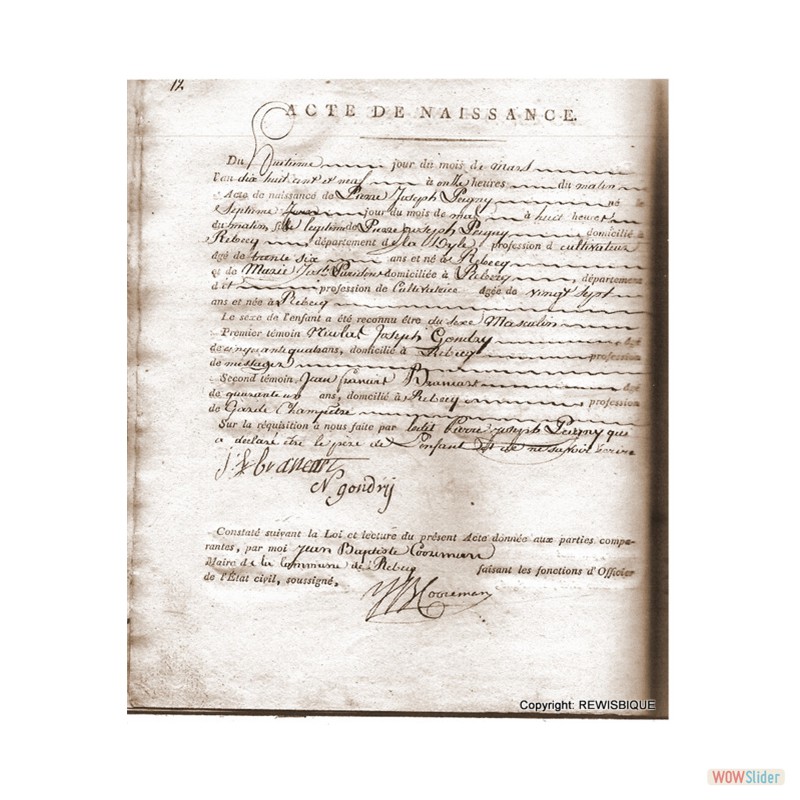 12.
ACTE DE NAISSANCE.
Du huitieme jour du mois de mars
l'an dix huit cent et neuf à onze heures du matin
Acte de naissance de Pierre Joseph Peigny né le
Septieme jour du mois de mars à huit heures
du matin fils légitime de Pierre Joseph Peigny domicilié à
Rebecq département de la Dyle profession de cultivateur
âgé de trente six ans et né à Rebecq
et de Marie domiciliée à Rebecq, département
dit profession de Cultivatrice âgée de vingt sept
ans et née à Rebecq
Le sexe de l'enfant a été reconnu être du sexe Masculin
Premier témoin Nicolas Joseph Gondry âgé
de cinquante quatre ans, domicilié à Rebecq profession
de messager
Second témoin Jean Brancart âgé
de quarante un ans, domicilié à Rebecq profession
de Garde Champêtre
Sur la réquisition à nous faite par ledit Pierre Joseph Peigny que
a declaré être le père de l'enfant et de ne savoir écrire
brancart
N gondrÿ
Constaté suivant la Loi et lecture du présent Acte donnée aux parties compa-
rantes, par moi Jean Baptiste Cooremen
Maire de la Commune de Rebecq faisant les fonctions d'Officier
de l'État civil, soussigné,
JB Cooremen
Copyright: REWISBIQUE
WOWSlider